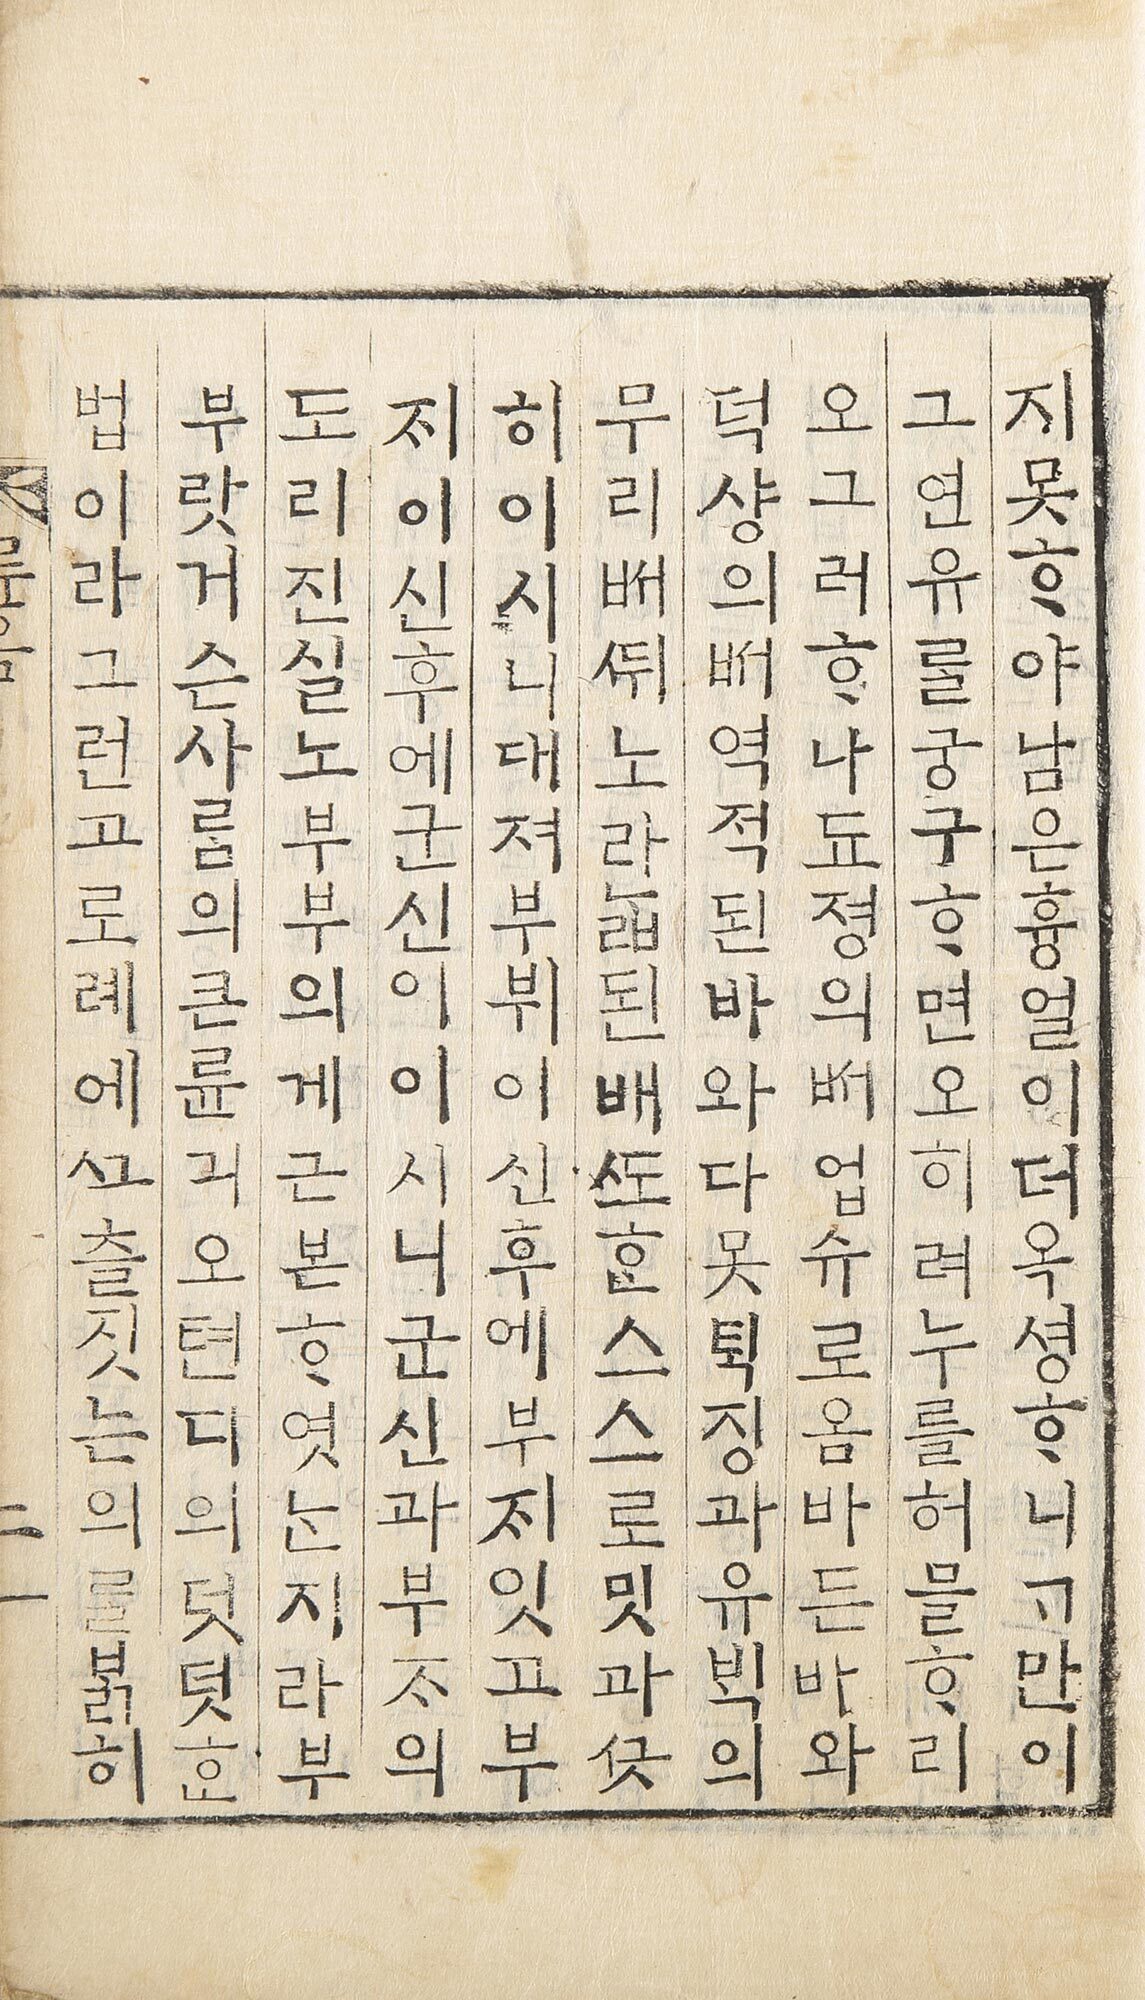 지못ᄒᆞ야남은흉얼이더옥셩ᄒᆞ니ᄀᆞ만이
그연유를궁구ᄒᆞ면오히려누를허믈ᄒᆞ리
오그러ᄒᆞ나됴졍의버업슈로옴바든바와
덕샹의버역적된바와다못퇵징과유빅의
무리버쒸노라ᄂᆞᆫ럽된배ᄯᅩᄒᆞᆫ스스로밋과ᄭᅳᆺ
히이시니대져부뷔이신후에부ᄌᆡ잇고부
ᄌᆡ이신후에군신이이시니군신과부ᄌᆞ의
도리진실노부부의게근본ᄒᆞ엿ᄂᆞᆫ지라부
부랏거슨사ᄅᆞᆷ의큰륜긔오텬디의덧덧ᄒᆞᆫ
법이라그런고로례에ᄡᅩ츌짓는의ᄅᆞᆯ붉히